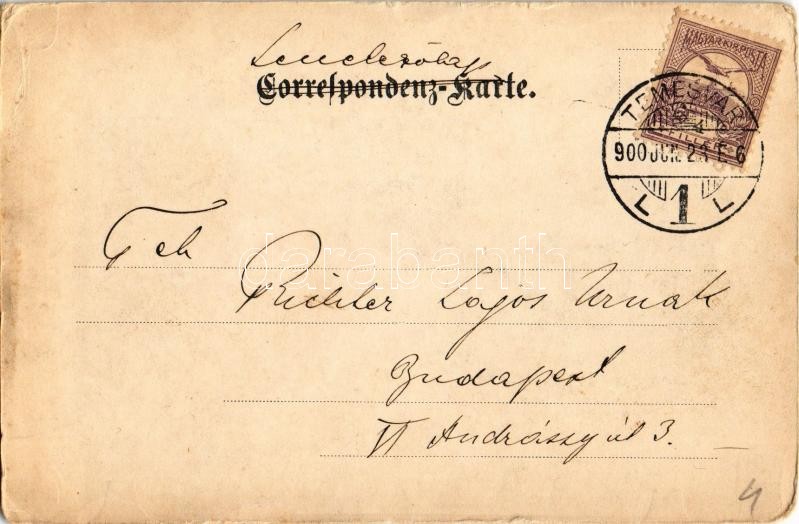 Correspondenz-Karte.
MAGYAR KIR. POSTA
TEMESVÁR
900 JUN. 21 E 6
L 1 L
Tek
Richter Lajos Urnak
Budapest
VI Andrássy út 3.
darabanth